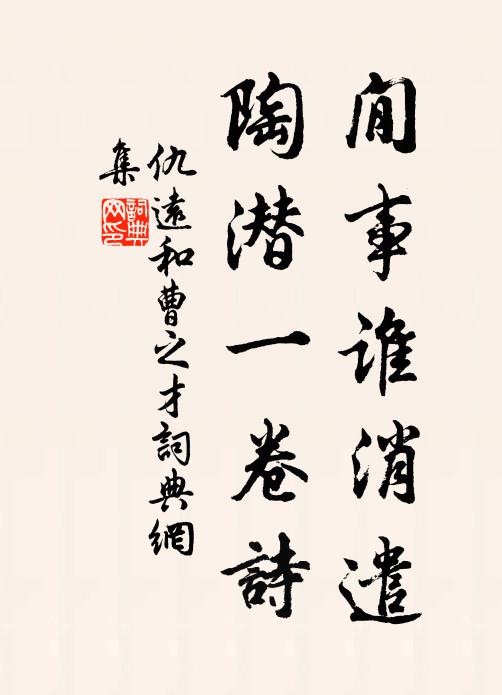 閒事谁消遣
陶潜一卷詩
仇遠和曹之才詞典網
集
詞典
网印